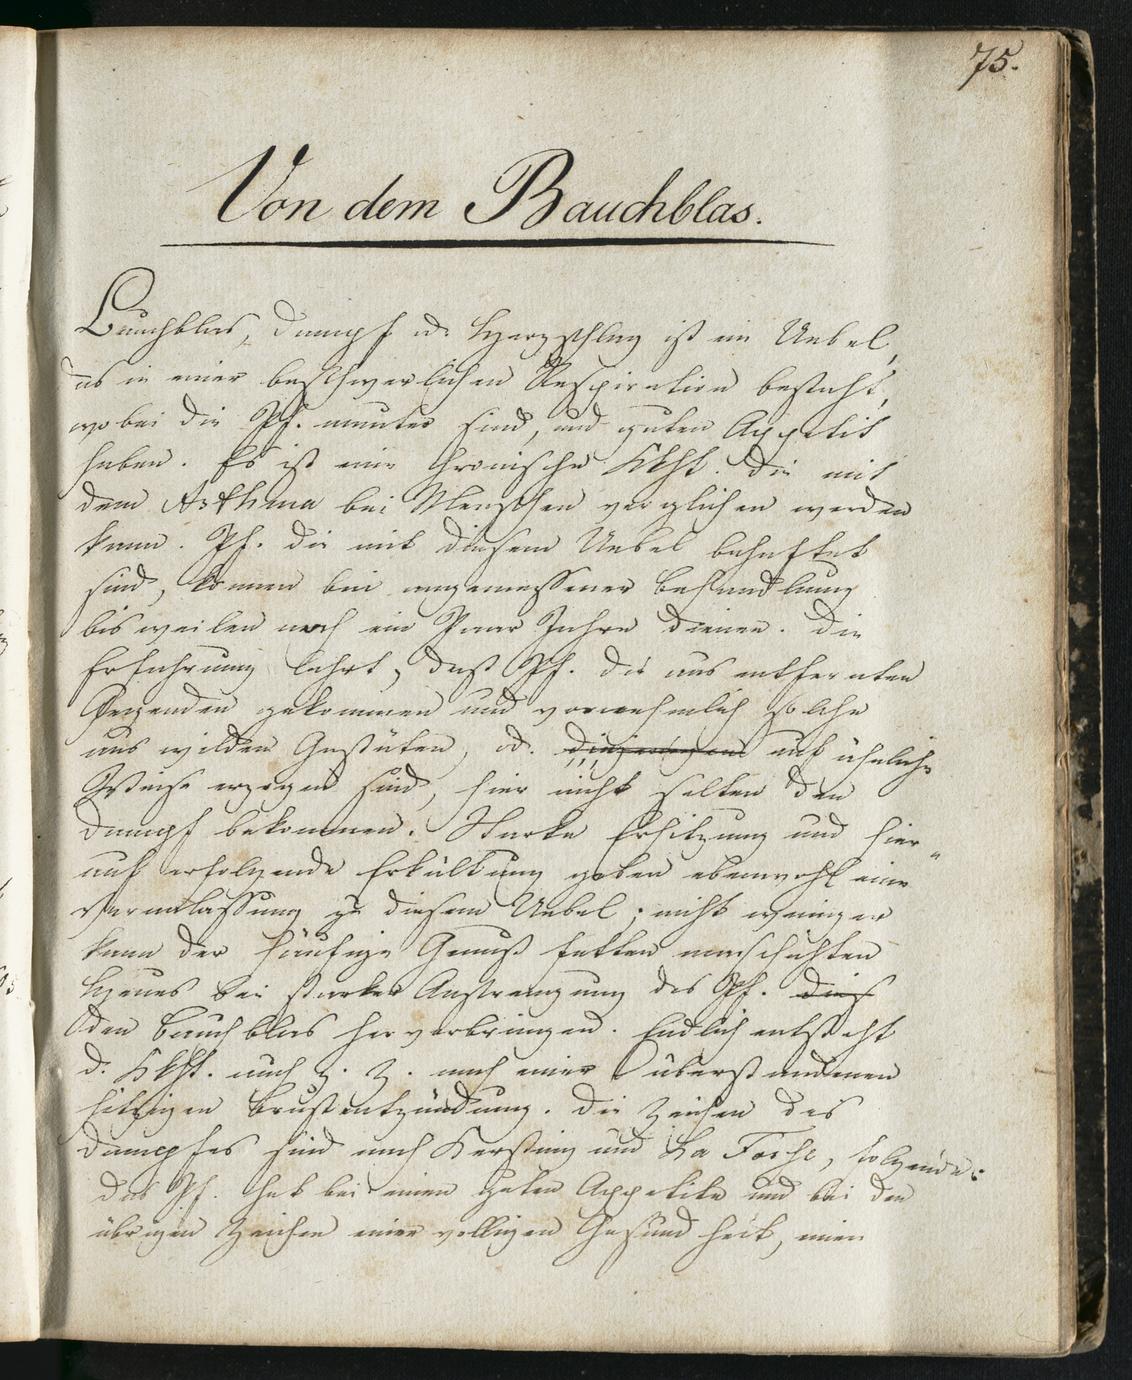 75.
Von dem Bauchblas.
Bauchblas, Dampf od. Herzschlag ist ein Uebel,
das in einer beschwerlichen Respiration besteht,
wobei die Pf. munter sind, und guten Appetit
haben. Es ist eine chronische Kkht. die mit
dem Asthma bei Menschen verglichen werden
kann. Pf. die mit diesem Uebel behaftet
sind, können bei angemessener Behandlung
bisweilen noch ein Paar Jahre dienen. Die
Erfahrung lehrt, daß Pf. die aus entfernten
Gegenden gekommen und vornehmlich solche
aus wilden Gestüten, od. diejenigen auf ähnliche
Weise erzogen sind, hier nicht selten den
Dampf bekommen. Starke Erhitzung und hier=
auf erfolgende Erkältung geben ebenwohl eine
Veranlassung zu diesem Uebel; nicht weniger
kann der häufige Genuß fetten
Heues bei starker Anstrengung des Pf. dies
den Bauchblas hervorbringen. Endlich entsteht
d. Kkht. auch z. Z. nach einer überstandenen
hitzigen Brustentzündung. Die Zeichen des
Dampfes sind nach Kersting und La Fosse, folgende:
Das Pf. hat bei einen guten Appetite und bei den
übrigen Zeichen einer völligen Gesundheit, einen